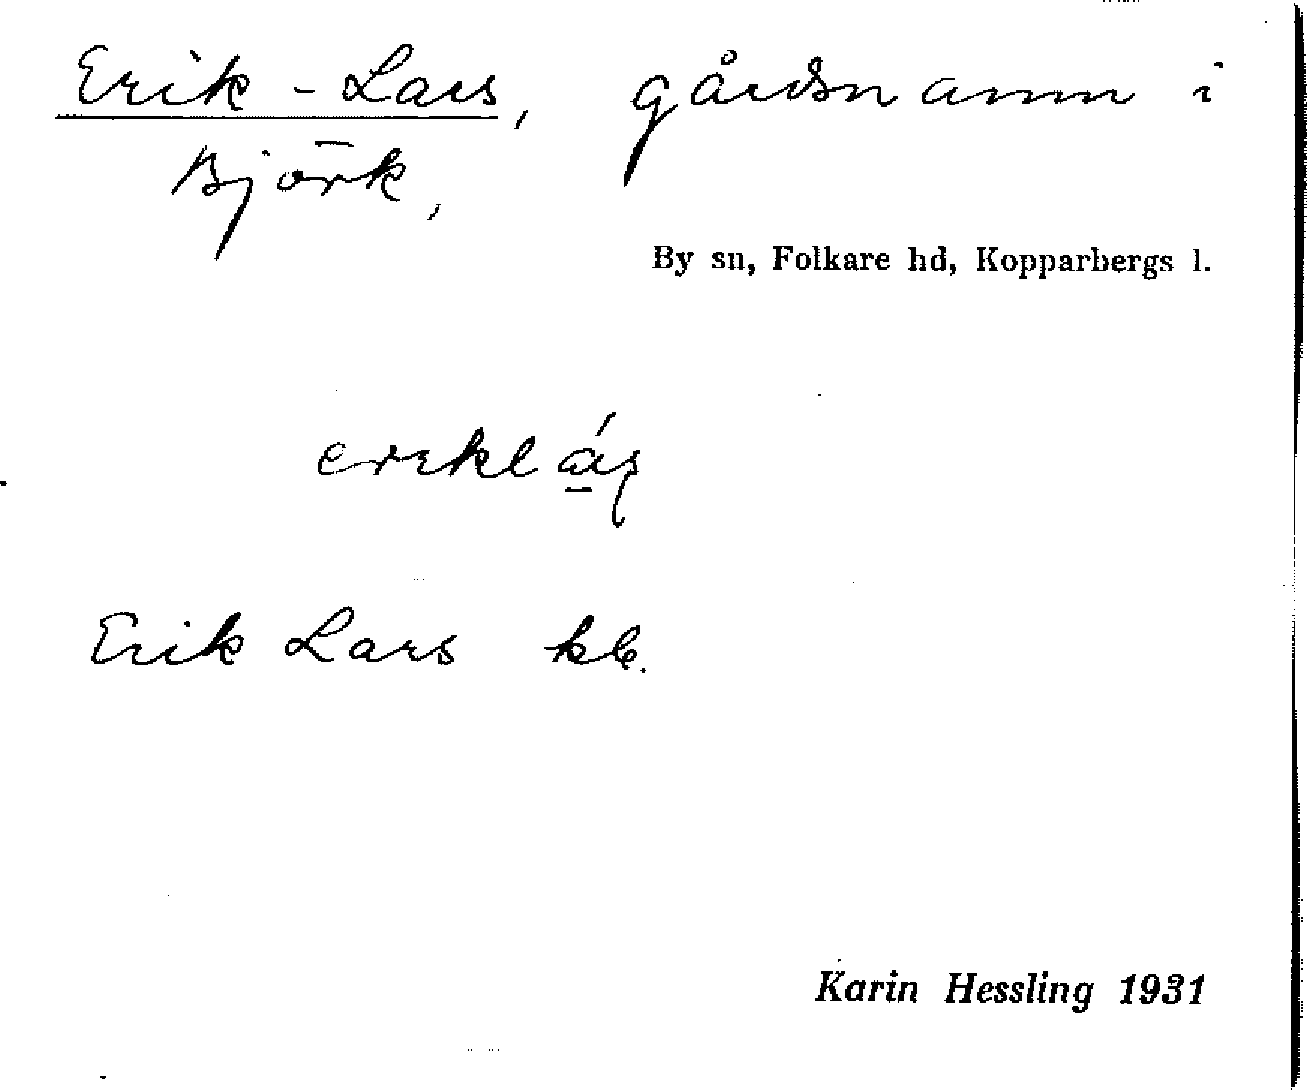 Erik-Lars, gårdsnamn i
Björk,
By sn, Folkare hd, Kopparbergs l.
Erik Lars kb.
Karin Hessling 1931